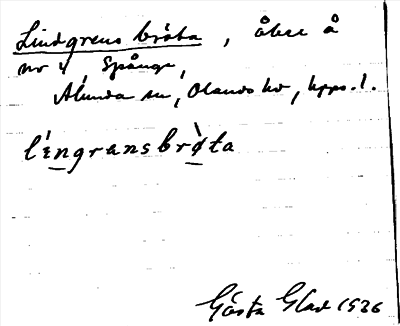 Lindgrens bråta, åker å
nr 4 Spånga,
Alunda sn, Olands hd, Upps. l.
lingransbrøta
Gösta Glad 1926